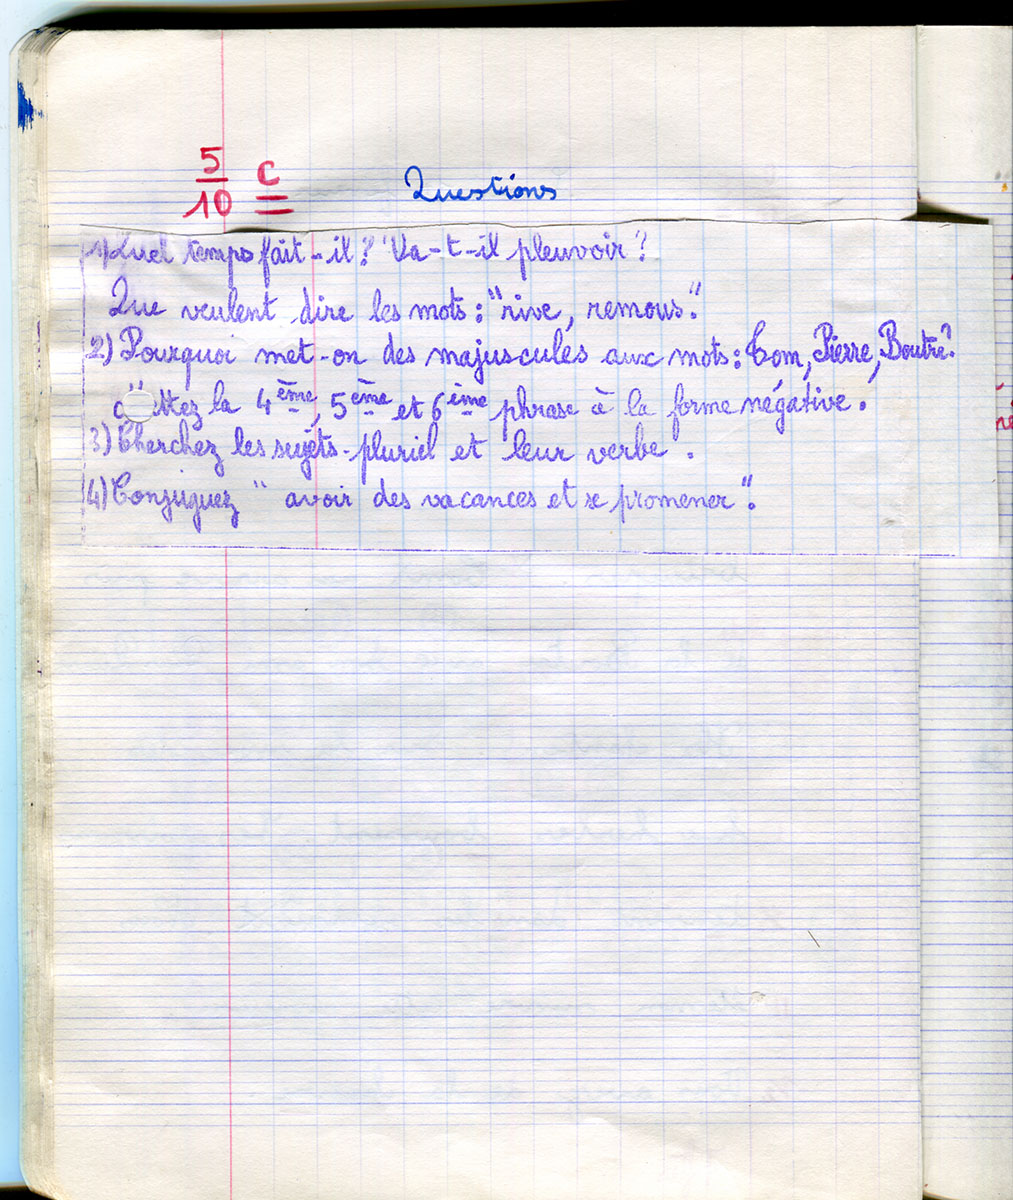 5/10 C
Questions
1) Quel temps fait-il? Va-t-il pleuvoir?
Que veulent dire les mots: "rive, remous".
2) Pourquoi met-on des majuscules aux mots: Tom, Pierre, Boutré?
la 4ème, 5ème et 6ième phrase à la forme négative.
3) Cherchez les sujets-pluriel et leur verbe.
4) Conjuguez "avoir des vacances et se promener".